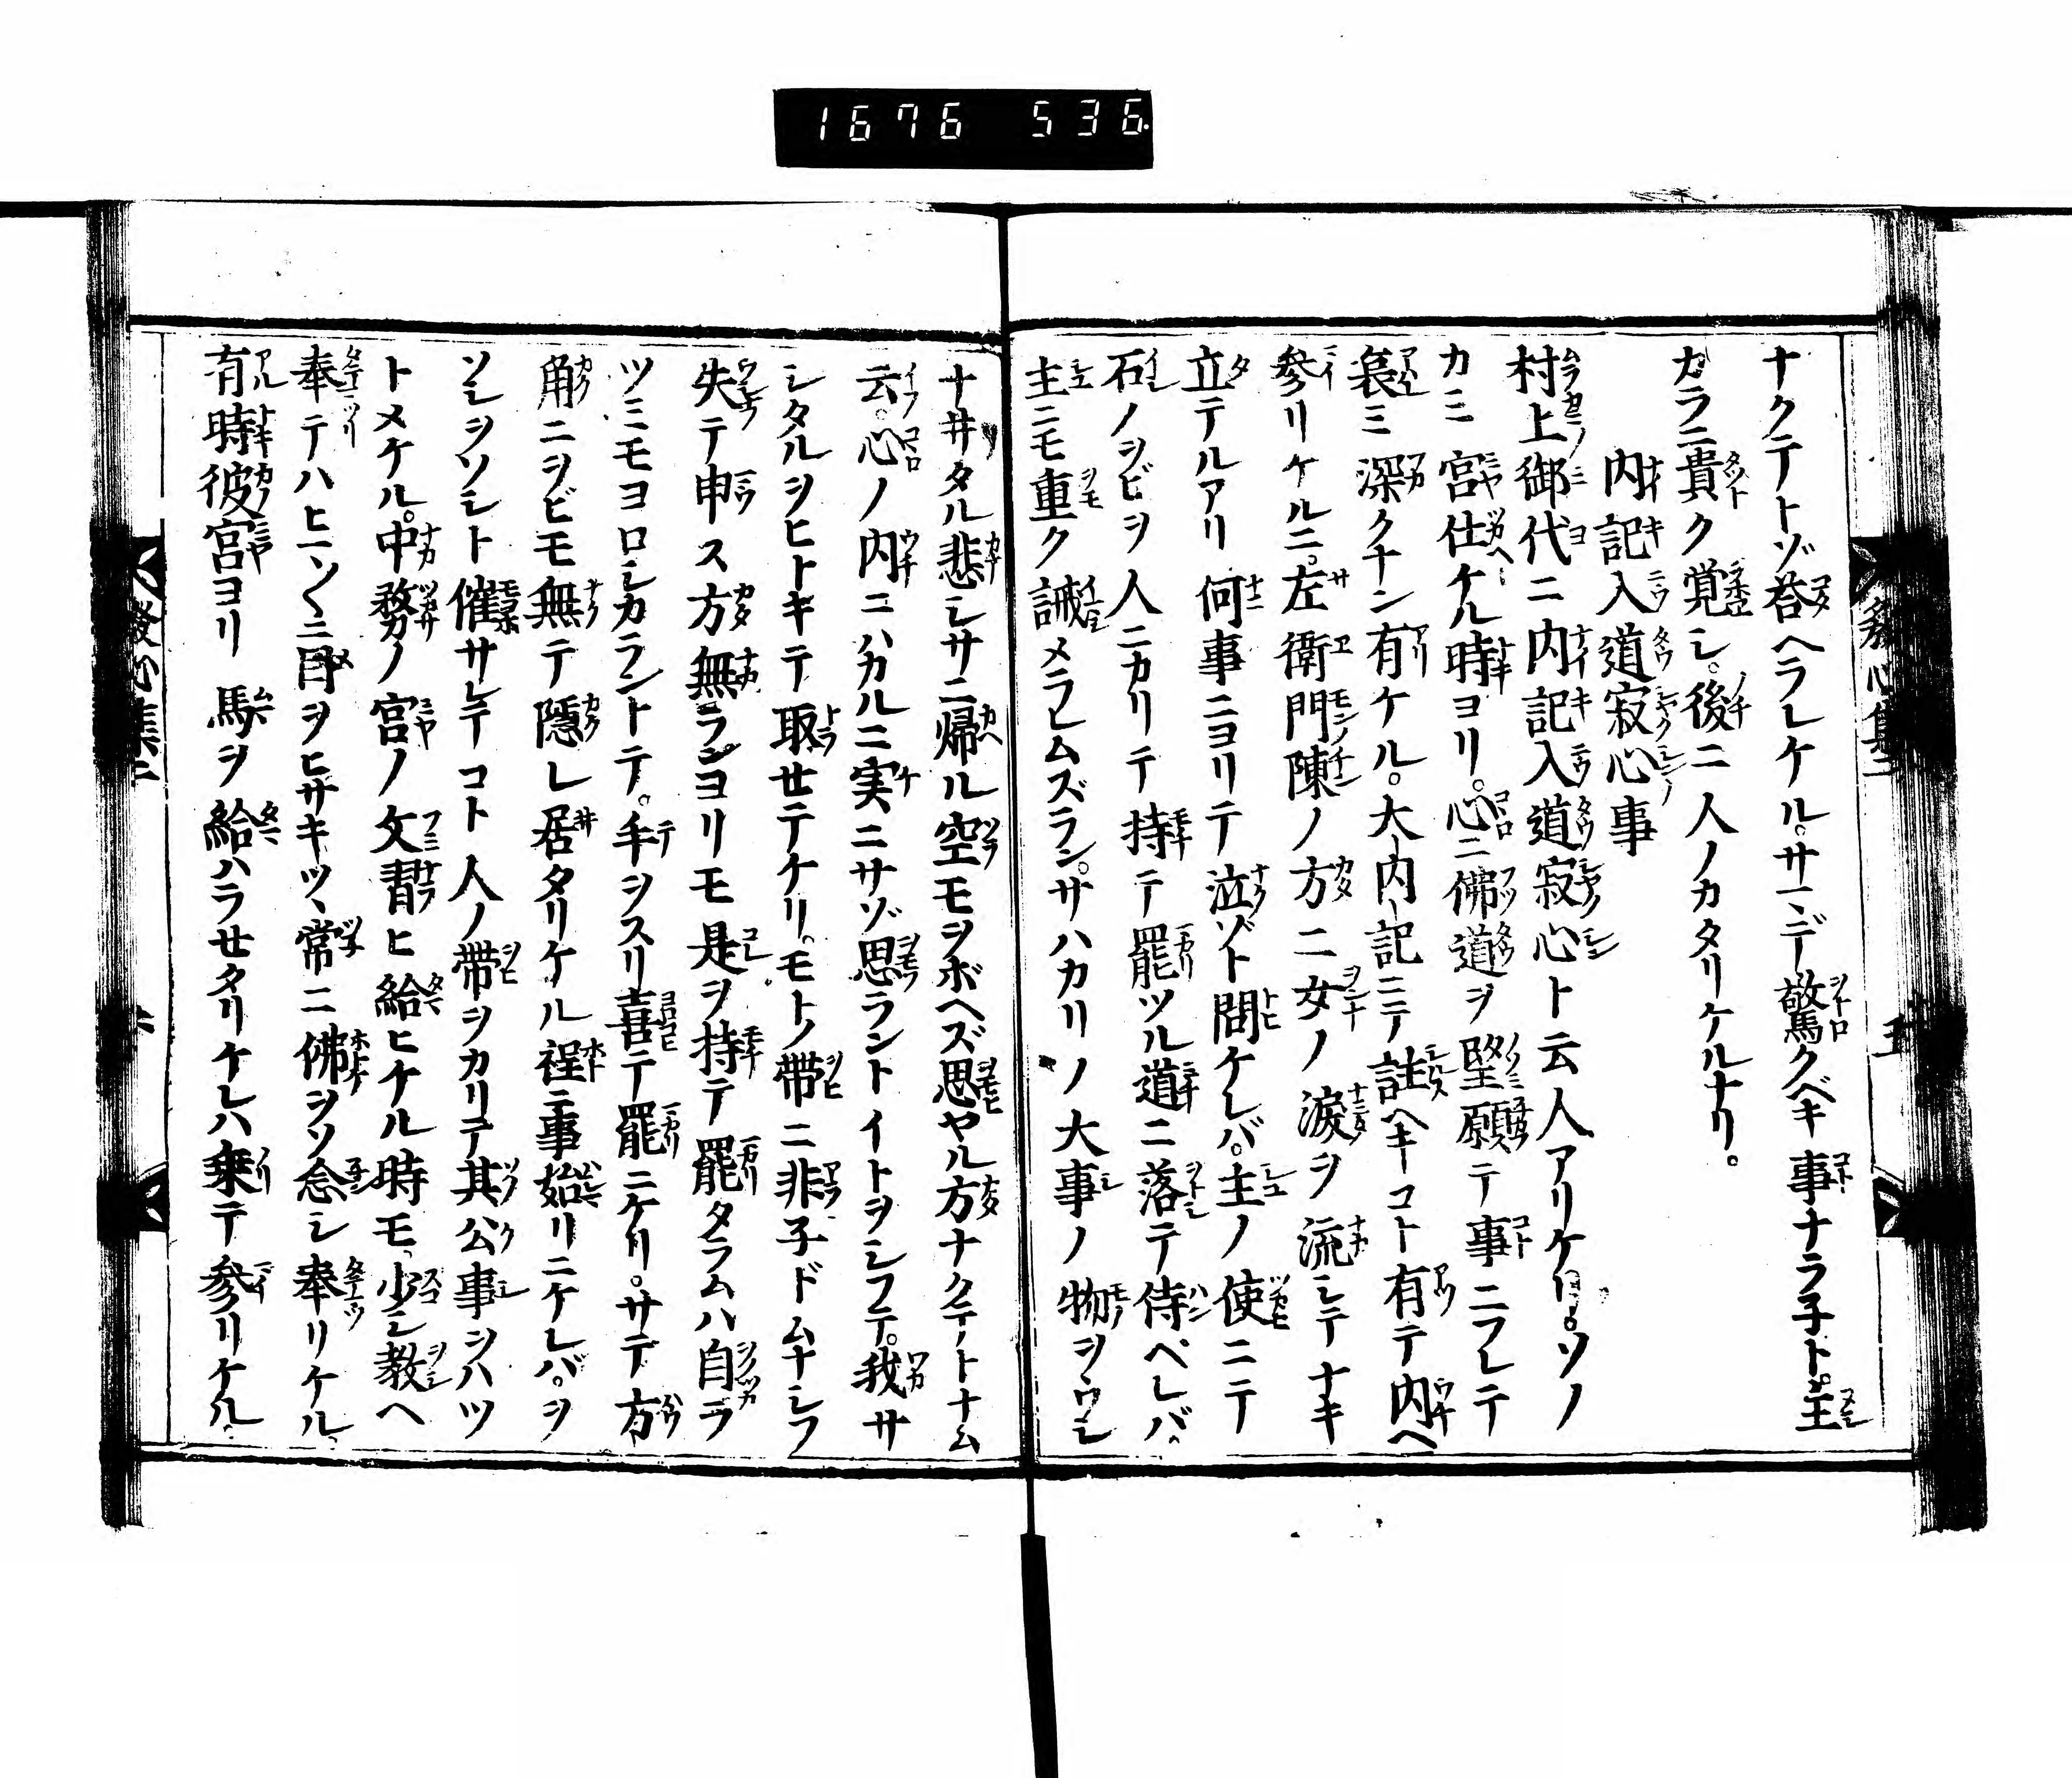 1676 536
ナクテトゾ荅ヘラレケル。サマデ驚クベキ事ナラ子ト。主
カラニ貴ク覚シ。後ニ人ノカタリケルナリ。
内記入道寂心事
村上御代ニ内記入道寂心ト云人アリケリ。ソノ
カミ宮仕ケル時ヨリ。心ニ佛道ヲ望願テ事ニフレテ
哀ミ深クナン有ケル。大内記ニテ註ヘキコト有テ内ヘ
参リケルニ。左衛門陳ノ方ニ女ノ涙ヲ流シテナキ
立テルアリ何事ニヨリテ泣ゾト問ケレバ。主ノ使ニテ
石ノヲビヲ人ニカリテ持テ罷ツル道ニ落テ侍ベレバ。
主ニモ重ク誡メラレムズラン。サハカリノ大事ノ物ヲウシ
ナ井タル悲シサニ帰ル空モヲボヘズ思ヤル方ナクテトナム
云。心ノ内ニハカルニ実ニサゾ思ラントイトヲシフテ。我サ
シタルヲヒトキテ取セテケリ。モトノ帯ニ非子ドムナシフ
失テ申ス方無ランヨリモ是ヲ持テ罷タラムハ自ラ
ツミモヨロシカラントテ。手ヲスリ喜テ罷ニケリ。サテ方
角ニヲビモ無テ隠レ居タリケル程ニ事始リニケレバ。ヲ
ソシヲソシト催サレテコト人ノ帯ヲカリテ其公事ヲハツ
トメケル。中務ノ宮ノ文習ヒ給ヒケル時モ少シ教ヘ
奉テハヒマ〱ニ目ヲヒサキツヽ常ニ佛ヲソ念シ奉リケル。
有時彼宮ヨリ馬ヲ給ハラセタリケレハ乗テ参リケル